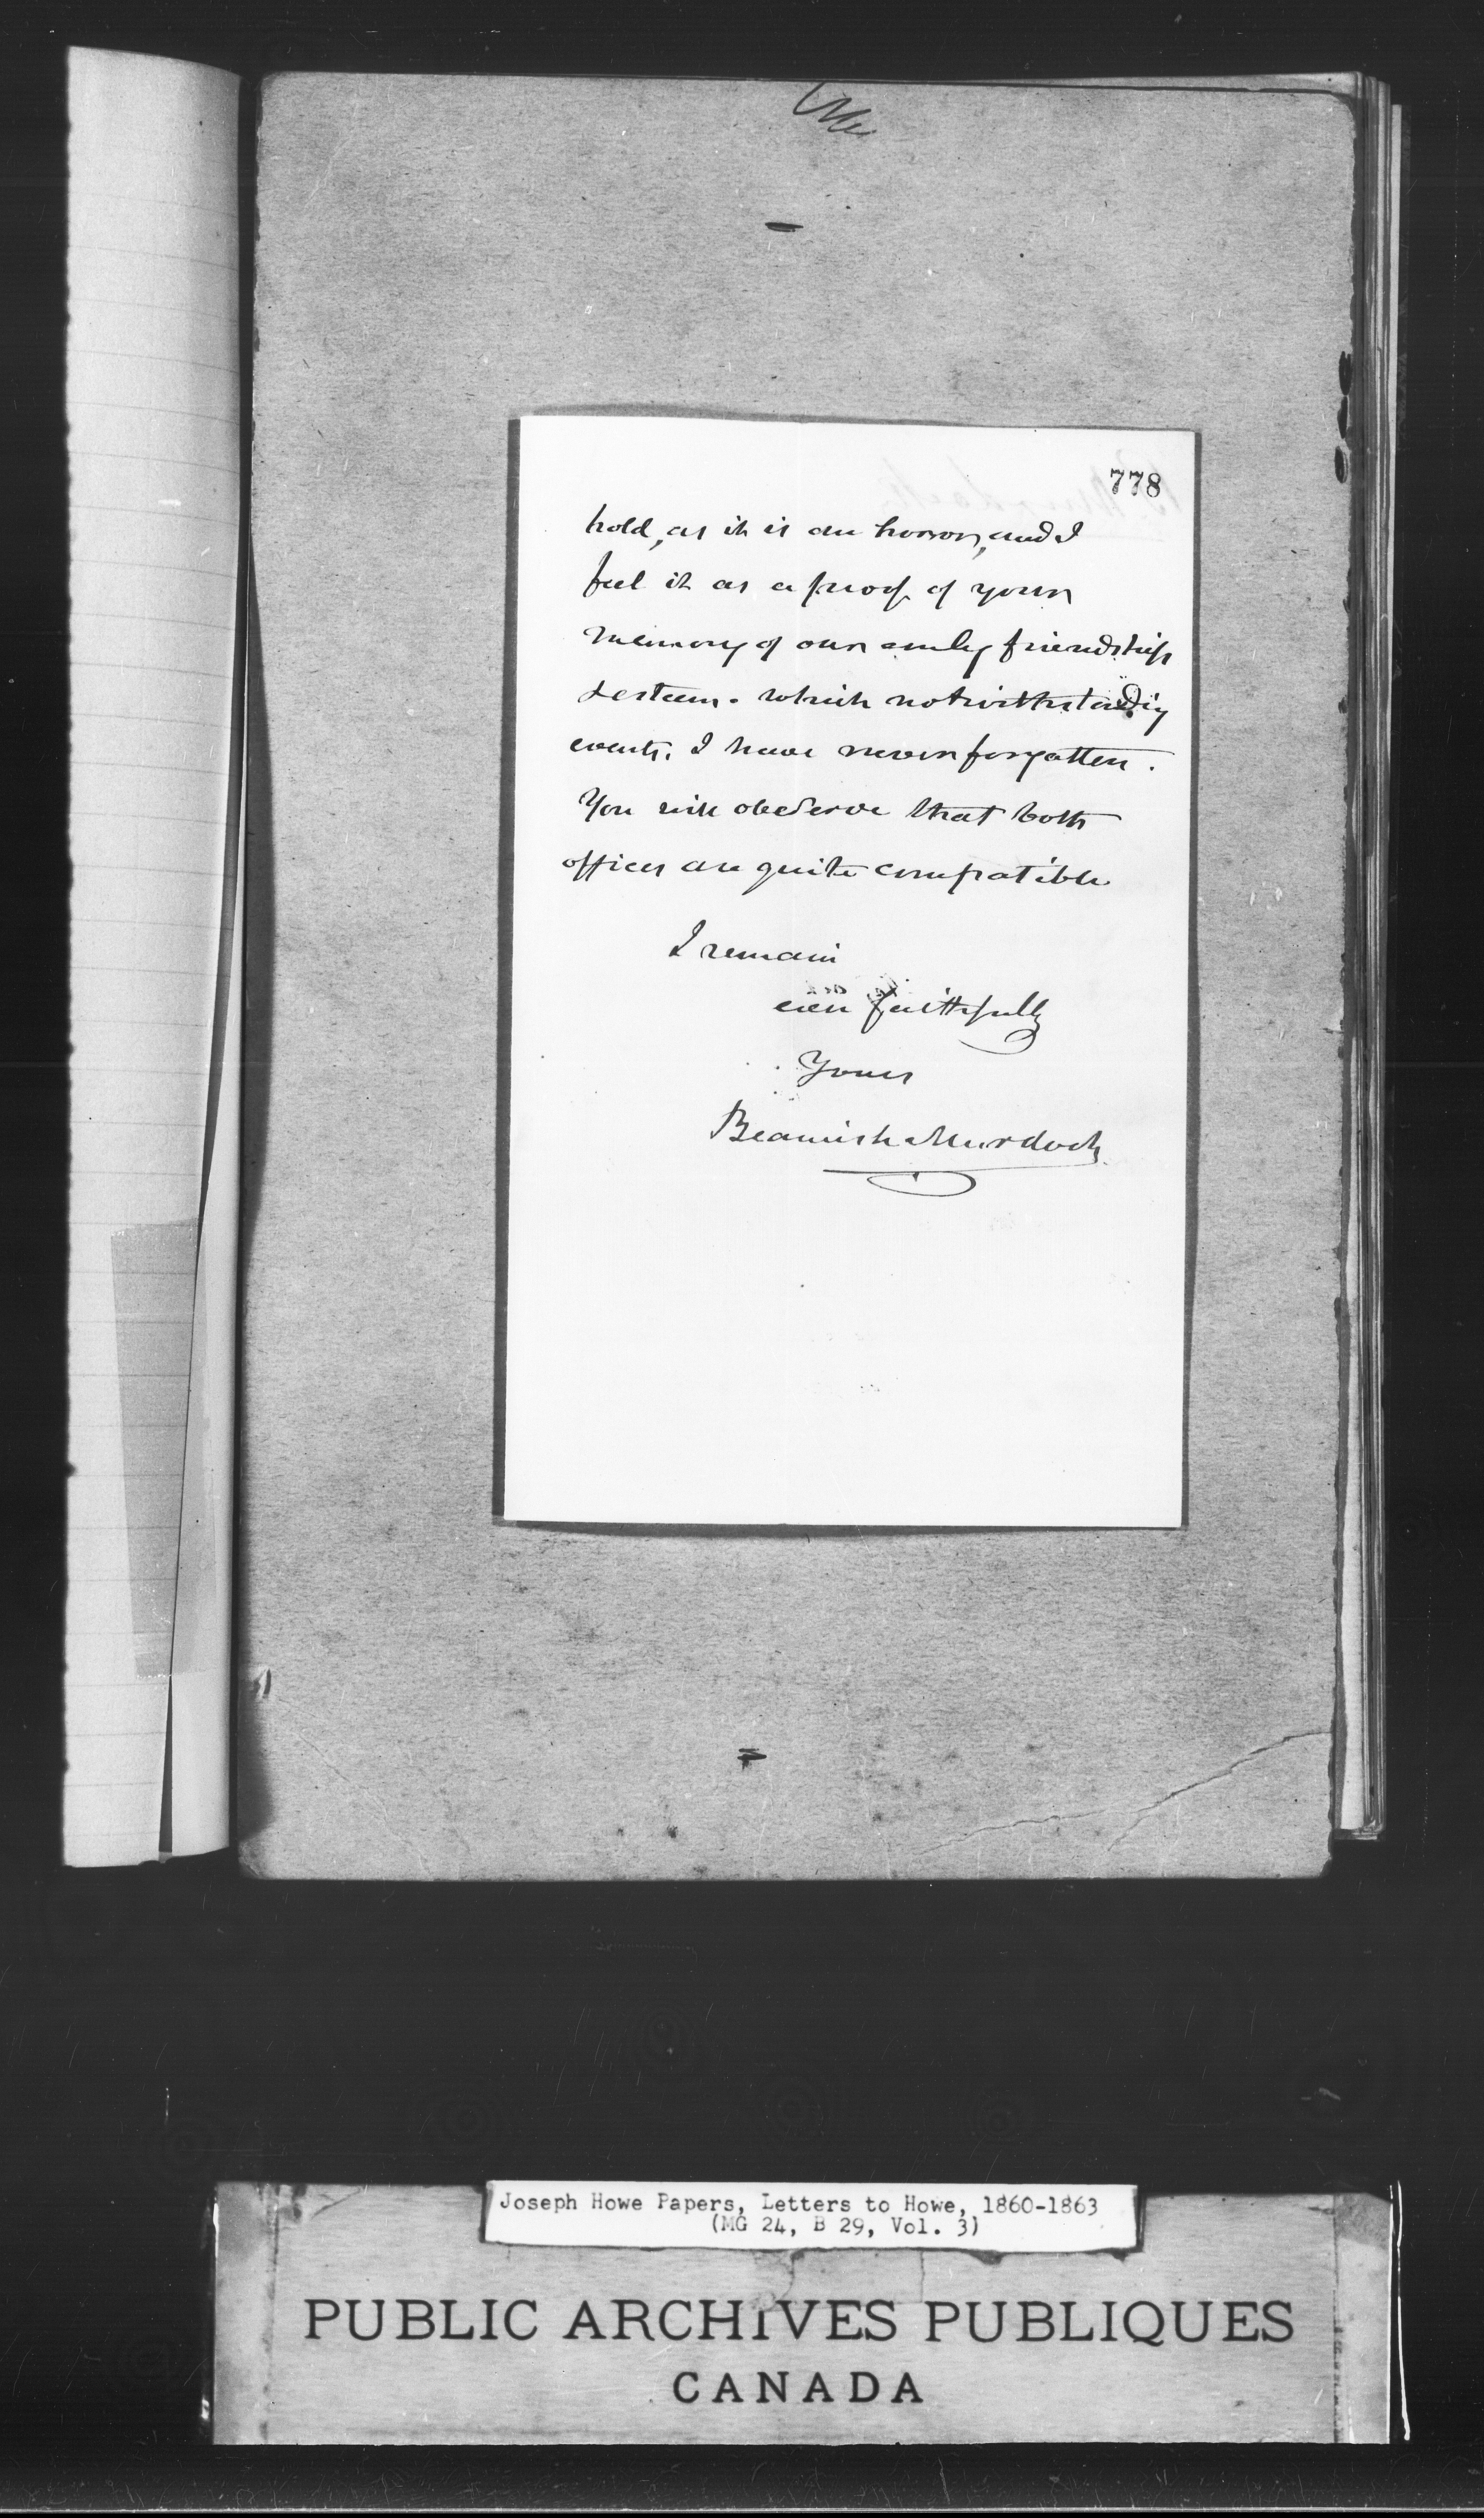 778
hold, as it is an honor, and I
feel it as a proof of your
memory of our early friendship
& esteem. which notwithstanding
events, I have never forgotten.
You will observe that both
offices are quite compatible
I remain
ever faithfully
Yours
Beamish Murdoch
Joseph Howe Papers, Letters to Howe, 1860-1863
(MG 24, B 29, Vol. 3)
PUBLIC ARCHIVES PUBLIQUES
CANADA